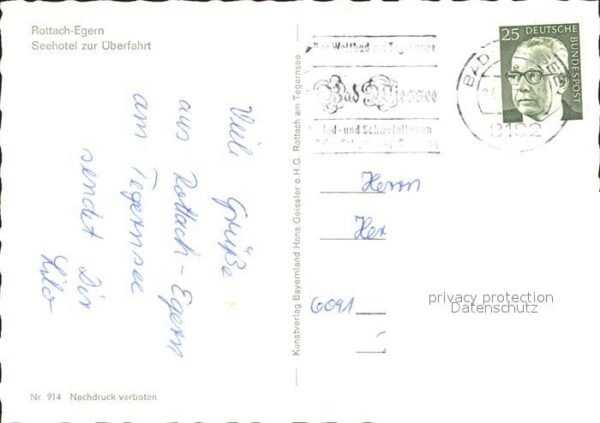 Rottach-Egern
Seehotel zur Überfahrt
Viele Grüße
aus Rottach-Egern
am Tegernsee
sendet Dir
Kunstverlag Bayernland Hans Geissler o.H.G. Rottach am Tegernsee
Bad Wiessee
BAD
8182
25
DEUTSCHE
BUNDESPOST
Herrn
6091
privacy protection
Datenschutz
Nr. 914 Nachdruck verboten